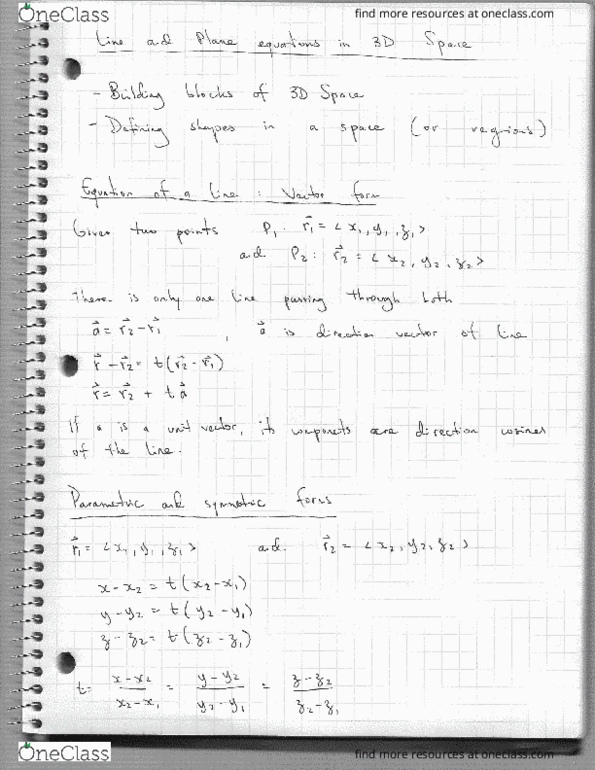 OneClass
find more resources at oneclass.com
Line and Plane equations in 3D Space
- Building blocks of 3D Space
- Defining shapes in a space (or regions)
Equation of a Line : Vector form
Given two points P₁ : r⃗₁ = < x₁, y₁, z₁ >
and P₂ : r⃗₂ = < x₂, y₂, z₂ >
There is only one line passing through both
a⃗ = r⃗₂ - r⃗₁ , a⃗ is direction vector of line
r⃗ - r⃗₂ = t(r⃗₂ - r⃗₁)
r⃗ = r⃗₂ + t a⃗
If a is a unit vector, its components are direction cosines
of the line.
Parametric and symmetric forms
r⃗₁ = < x₁, y₁, z₁ > and r⃗₂ = < x₂, y₂, z₂ >
x - x₂ = t(x₂ - x₁)
y - y₂ = t(y₂ - y₁)
z - z₂ = t(z₂ - z₁)
t = (x - x₂)/(x₂ - x₁) = (y - y₂)/(y₂ - y₁) = (z - z₂)/(z₂ - z₁)
OneClass
find more resources at oneclass.com